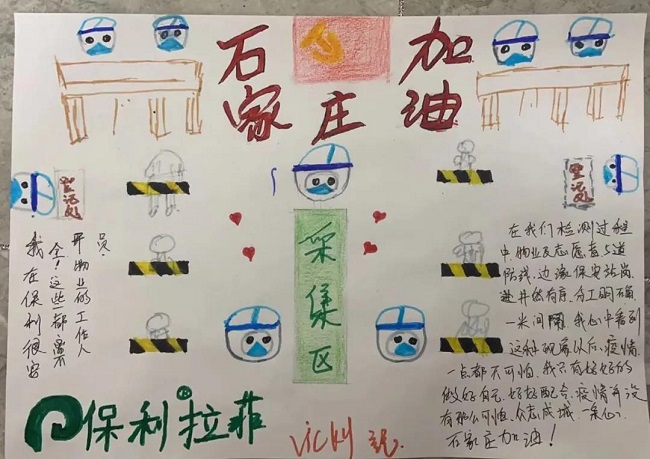 石家庄 加油
登记处
登记处
采集区
我在保利很安
全!这些都离不
开物业的工作人
员.
在我们检测过程
中物业及志愿者5道
防线,边缘保安站岗
井然有序,分工明确
一米间隔,我心中看到
这种现象以后,疫情
一点都不可怕,我只有好好的
做好自己,好好配合,疫情并没
有那么可怕,众志成城一条心,
石家庄加油!
保利拉菲
Vicky 记.